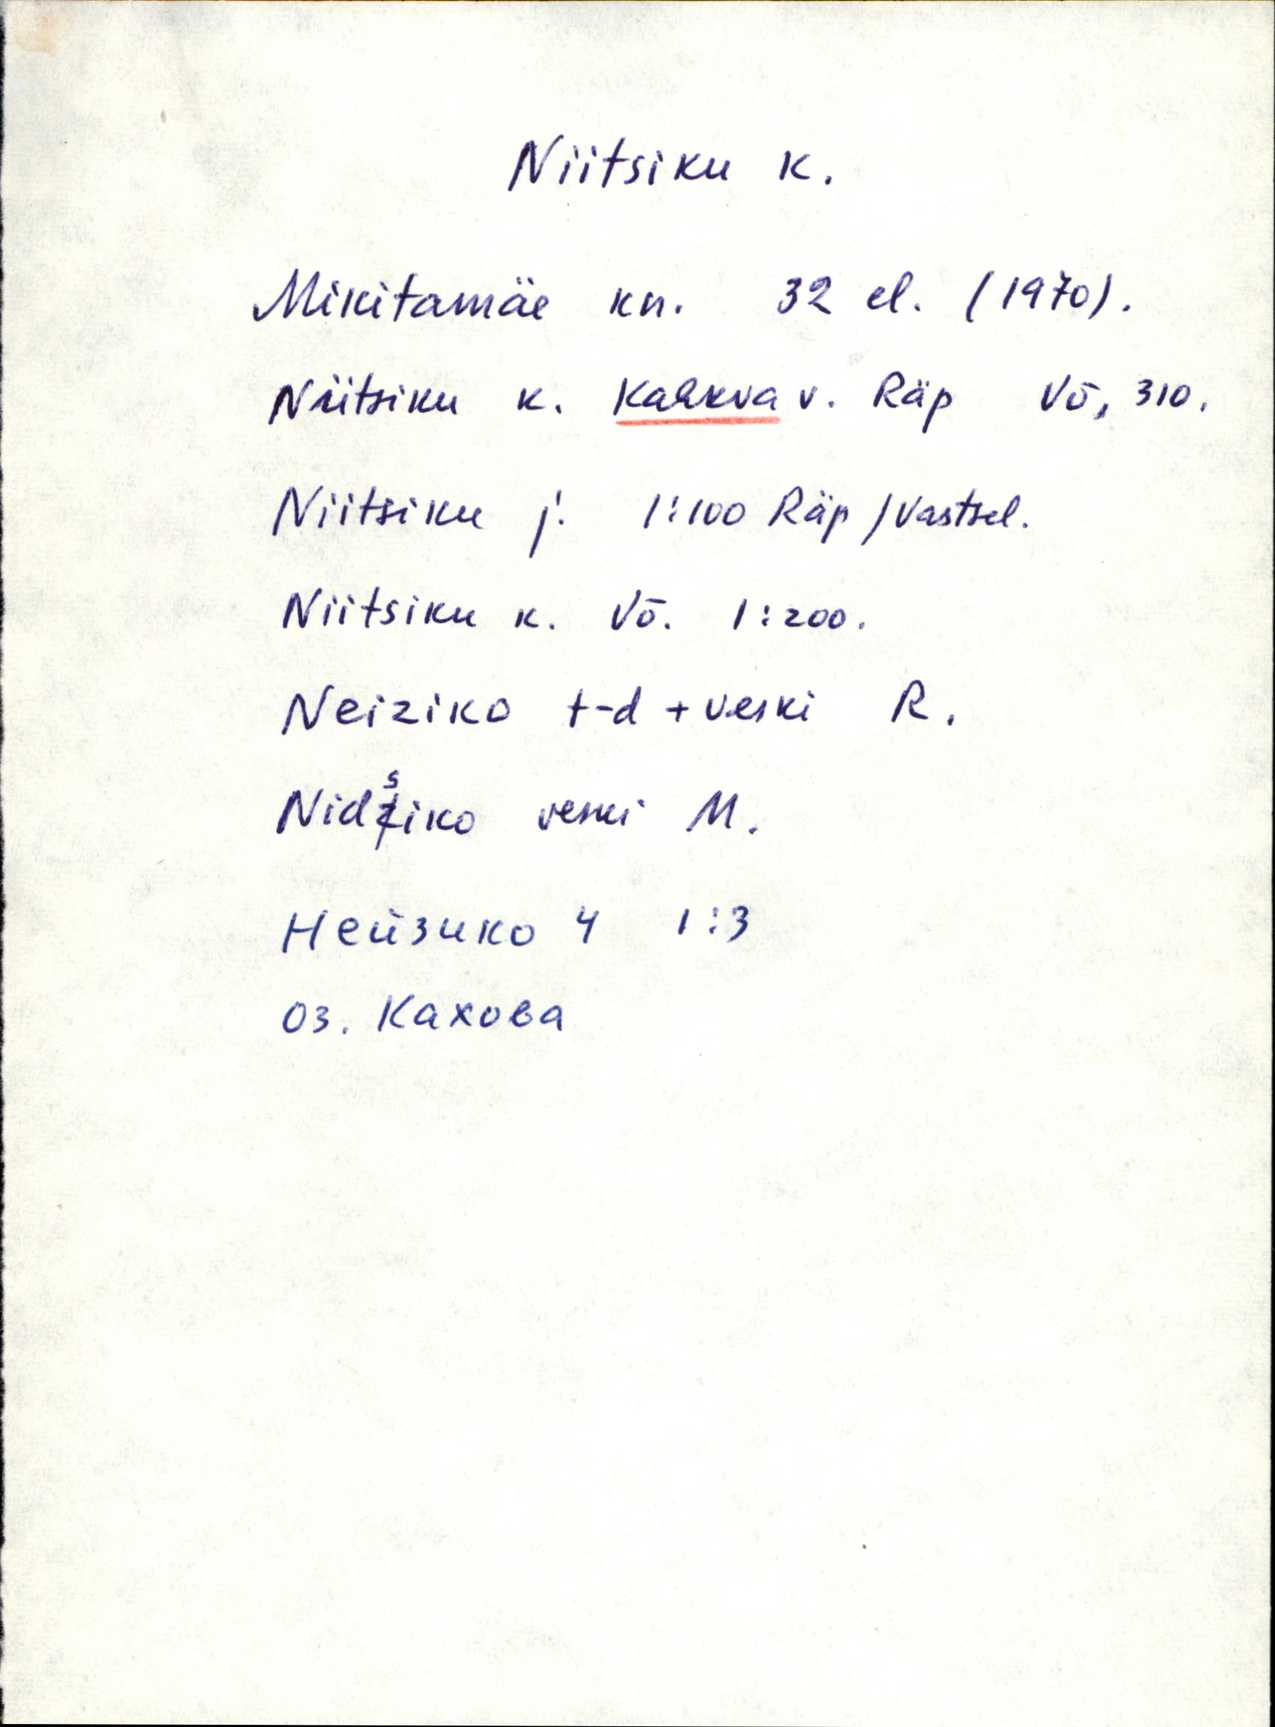 Niitsiku k.
Mikitamäe kn. 32 el. (1970).
Niitsiku k. Kahkva v. Räp Võ, 310.
Niitsiku j. 1:100 Räp/Vastsel.
Niitsiku k. Võ. 1:200.
Neiziko t-d + veski R.
Nidsiko veski M.
Нейзико 4 1:3
оз. Кахова